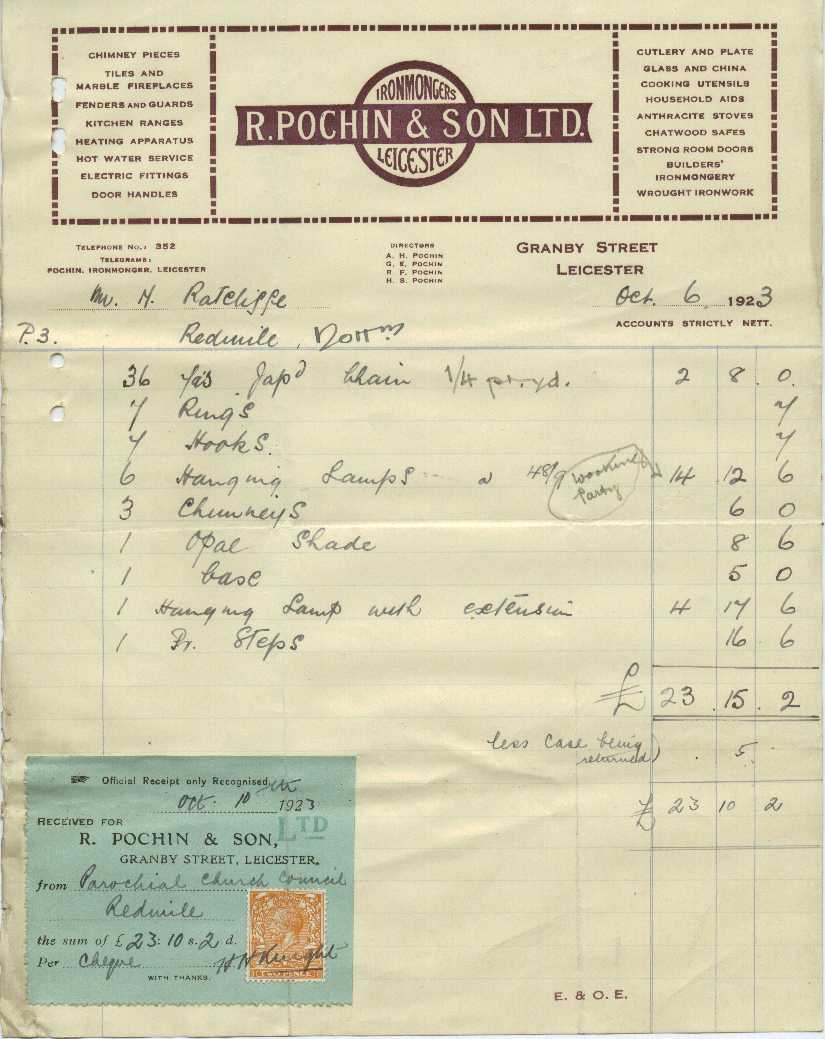 CHIMNEY PIECES
TILES AND
MARBLE FIREPLACES
FENDERS AND GUARDS
KITCHEN RANGES
HEATING APPARATUS
HOT WATER SERVICE
ELECTRIC FITTINGS
DOOR HANDLES
IRONMONGERS
R. POCHIN & SON LTD.
LEICESTER
CUTLERY AND PLATE
GLASS AND CHINA
COOKING UTENSILS
HOUSEHOLD AIDS
ANTHRACITE STOVES
CHATWOOD SAFES
STRONG ROOM DOORS
BUILDERS'
IRONMONGERY
WROUGHT IRONWORK
TELEPHONE NO.: 352
TELEGRAMS:
POCHIN, IRONMONGER, LEICESTER
DIRECTORS
A. H. POCHIN
G. E. POCHIN
R. F. POCHIN
H. S. POCHIN
GRANBY STREET
LEICESTER
Mr. H. Ratcliffe
Oct. 6 1923
ACCOUNTS STRICTLY NETT.
P.3. Redmile, Nottm
36 yds Japd Chain 1/4 pr. yd. 2 8 0
7 Rings 7
7 Hooks. 7
6 Hanging Lamps a 48/9 Working Party 14 12 6
3 Chimneys 6 0
1 Opal Shade 8 6
1 Case 5 0
1 Hanging Lamp with extension 4 17 6
1 Pr. Steps 16 6
£ 23 15 2
less case being returned) 5
£ 23 10 2
Official Receipt only Recognised.
Oct. 10th 1923
RECEIVED FOR
R. POCHIN & SON, LTD
GRANBY STREET, LEICESTER.
from Parochial Church Council
Redmile
the sum of £ 23: 10 s. 2 d.
Per Cheque H H Knight
WITH THANKS.
E. & O. E.